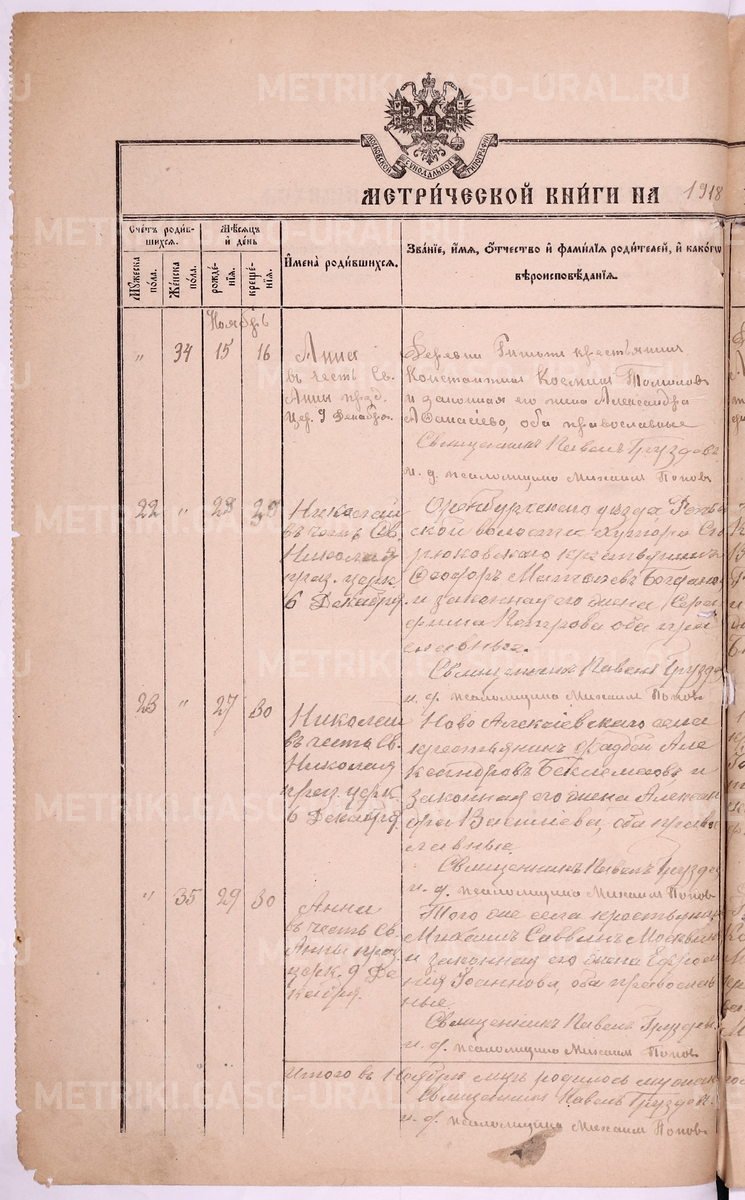 МОСКОВСКОЙ СѴНОДАЛЬНОЙ ТИПОГРАФІИ
МЕТРИ́ЧЕСКОЙ КНИ́ГИ НА 1918
Сче́тъ роди́в-
шихся.
Мѣ́сяцъ
и҆ де́нь
И҆мена̀ роди́вшихся.
Зва́ніе, и҆́мя, ѻ҆́тчество и҆ фами́лія роди́телей, и҆ како́гѡ
вѣроисповѣ́данія.
Му́жеска
по́ла.
Же́нска
по́ла.
рожде́-
нія.
креще́-
нія.
Ноябрь
„ 34 15 16
Анна
въ честь Св.
Анны празд.
цер. 9 Декабря.
Деревни крестьянин
Константин Косьмин
и законная его жена Александра
Афанасіева, оба православные
Священникъ Павелъ Груздевъ
и. д. псаломщика Михаилъ Поповъ
22 „ 23 29
Николай
въ честь Св.
Николая
праз. церк.
6 Декабря.
Оренбургского уезда
ской волости хутора
крестьянинъ
Феодоръ Матвѣевъ Богдано
и законная его жена Сера
фима Петрова оба пра
славные.
Священникъ Павелъ Грузде
и. д. псаломщика Михаилъ Поповъ
23 „ 27 30
Николай
въ честь Св.
Николая
праз. церк.
6 Декабря.
Ново Алексіевского села
крестьянин Фаддей Але
ксандровъ Беклемесовъ и
законная его жена Алексан
дра Василіева, оба право
славные.
Священникъ Павелъ Груздев
и. д. псаломщика Михаилъ Поповъ
„ 35 29 30
Анна
въ честь Св.
Анны праз.
церк. 9 Де
кабря.
Того же села крестьянин
Михаилъ Саввинъ Москвин
и законная его жена Евфроси
нія Іоаннова, оба православ
ные.
Священникъ Павелъ Груздев
и. д. псаломщика Михаилъ Поповъ
Итого въ Ноябрѣ мцѣ родилось мужска
Священникъ Павелъ Груздев.
и. д. псаломщика Михаилъ Поповъ
METRIKI.GASO-URAL.RU